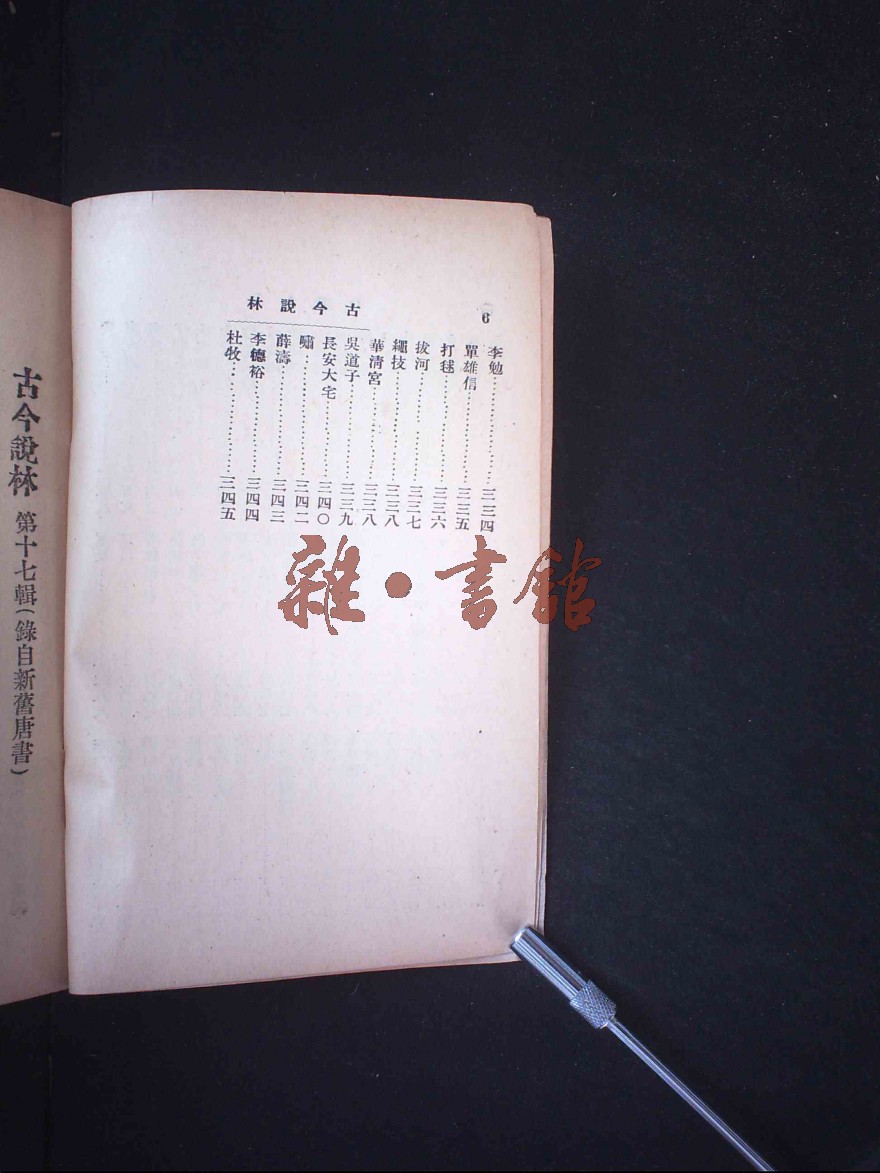 6
古今說林
李勉……………三三四
單雄信……………三三五
打毬……………三三六
拔河……………三三七
繩技……………三三八
華清宮……………三三八
吳道子……………三三九
長安大宅……………三四〇
嘯……………三四二
薛濤……………三四三
李德裕……………三四四
杜牧……………三四五
古今說林 第十七輯(錄自新舊唐書)
雜·書館